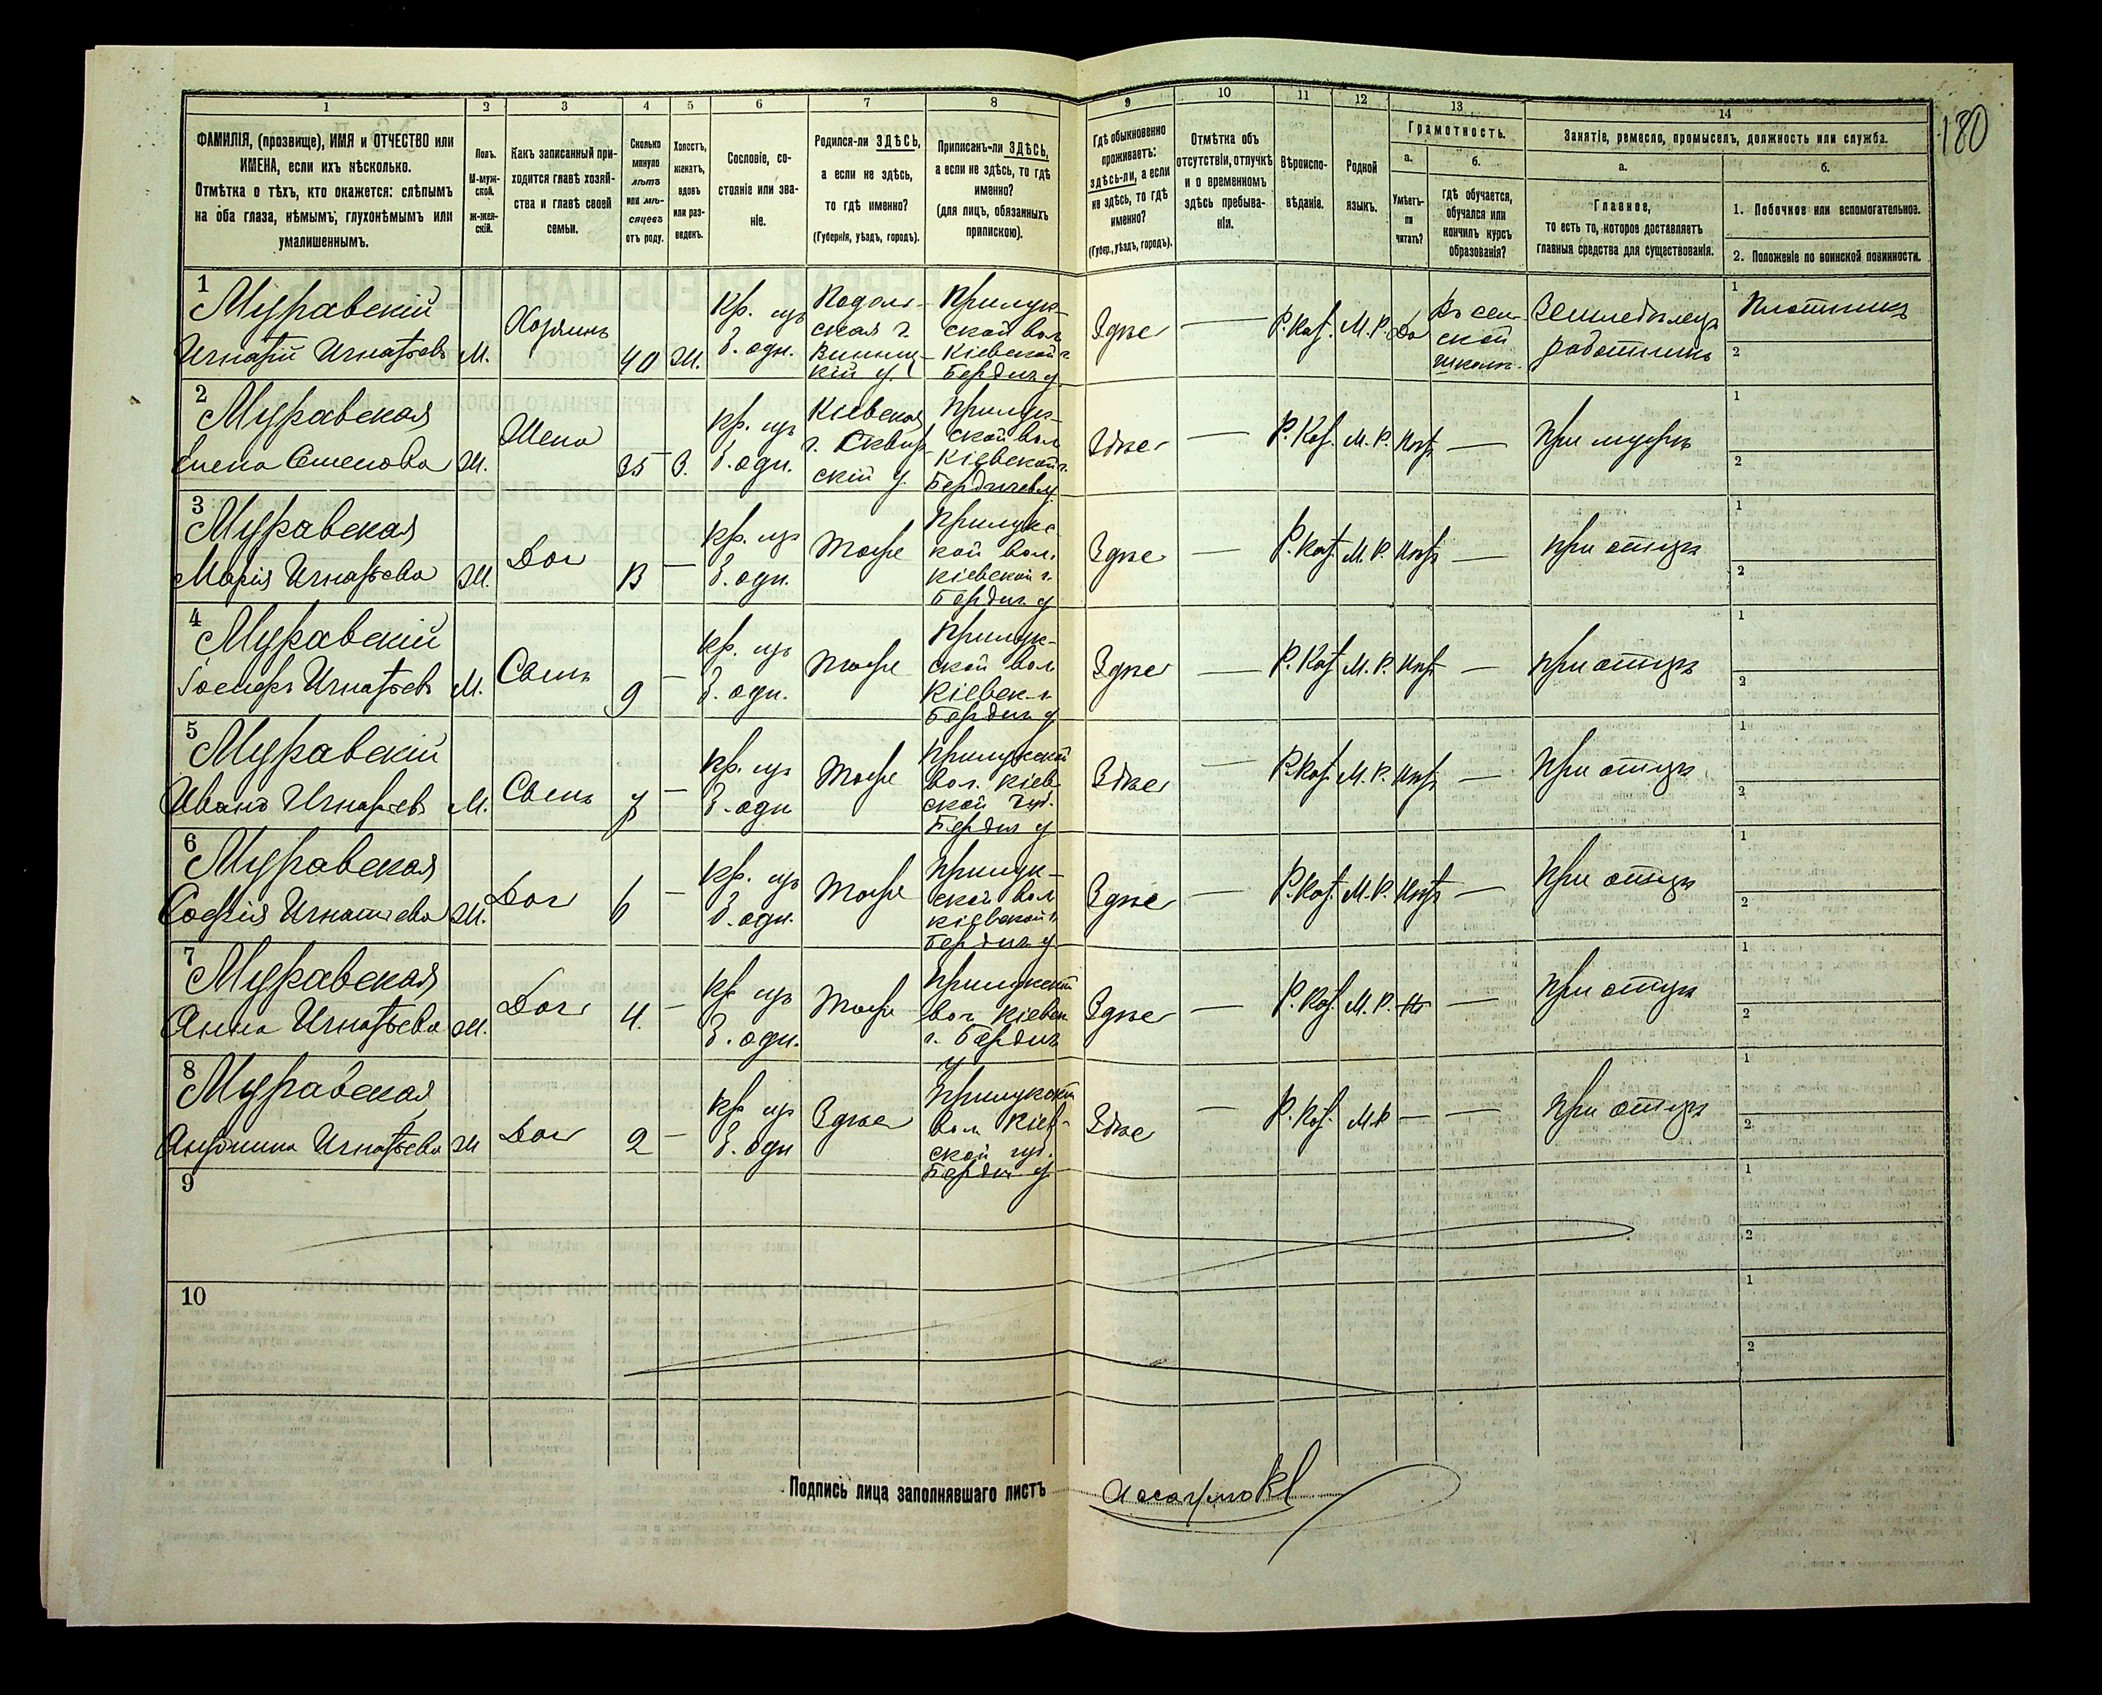 180
1 2 3 4 5 6 7 8 9 10 11 12 13 14
ФАМИЛІЯ, (прозвище), ИМЯ и ОТЧЕСТВО или
ИМЕНА, если ихъ нѣсколько.
Отмѣтка о тѣхъ, кто окажется: слѣпымъ
на оба глаза, нѣмымъ, глухонѣмымъ или
умалишеннымъ.
Полъ.
М-муж-
ской.
Ж-жен-
скій.
Какъ записанный при-
ходится главѣ хозяй-
ства и главѣ своей
семьи.
Сколько
минуло
лѣтъ
или мѣ-
сяцевъ
отъ роду.
Холостъ,
женатъ,
вдовъ
или раз-
веденъ.
Сословіе, со-
стояніе или зва-
ніе.
Родился-ли ЗДѢСЬ,
а если не здѣсь,
то гдѣ именно?
(Губернія, уѣздъ, городъ).
Приписанъ-ли ЗДѢСЬ,
а если не здѣсь, то гдѣ
именно?
(для лицъ, обязанныхъ
припискою).
Гдѣ обыкновенно
проживаетъ:
здѣсь-ли, а если
не здѣсь, то гдѣ
именно?
(Губер., уѣздъ, городъ).
Отмѣтка объ
отсутствіи, отлучкѣ
и о временномъ
здѣсь пребыва-
ніи.
Вѣроиспо-
вѣданіе.
Родной
языкъ.
Грамотность.
а.
Умѣетъ-
ли
читать?
б.
Гдѣ обучается,
обучался или
кончилъ курсъ
образованія?
Занятіе, ремесло, промыселъ, должность или служба.
а.
Главное,
то есть то, которое доставляетъ
главныя средства для существованія.
б.
1. Побочное или вспомогательное.
2. Положеніе по воинской повинности.
1
Муравскій
Игнатій Игнатьевъ
М.
Хозяинъ
40
Ж.
Кр. изъ
б. одн.
Подоль-
ская г.
Винниц-
кій у.
Прилук-
ской вол
Кіевской г.
Бердич у.
Здѣсь
Р. Каѳ.
М. Р.
Да
Въ сель-
ской
школѣ.
Земледѣлецъ
работникъ
1
Плотникъ
2
2
Муравская
Елена Семенова
Ж.
Жена
35
З.
Кр. изъ
б. одн.
Кіевская
г. Сквир-
скій у.
Прилук-
ской вол
Кіевской г.
Бердичев у
Здѣсь
Р. Каѳ.
М. Р.
Нѣтъ
При мужѣ
1
2
3
Муравская
Марія Игнатьева
Ж.
Доч
13
Кр. изъ
б. одн.
Тоже
Прилукс-
кой вол.
Кіевской г.
Бердич. у
Здѣсь
Р. Каѳ.
М. Р.
Нѣтъ
При отцѣ
1
2
4
Муравскій
Іосифъ Игнатьевъ
М.
Сынъ
9
Кр. изъ
б. одн.
Тоже
Прилук-
ской вол
Кіевск. г.
Бердич. у
Здѣсь
Р. Каѳ.
М. Р.
Нѣтъ
При отцѣ
1
2
5
Муравскій
Иванъ Игнатьев
М.
Сынъ
7
Кр. изъ
б. одн
Тоже
Прилукской
вол. Кіев-
ской губ.
Бердич у
Здѣсь
Р. Каѳ.
М. Р.
Нѣтъ
При отцѣ
1
2
6
Муравская
Софія Игнатьева
Ж.
Доч
6
Кр. изъ
б. одн.
Тоже
Прилук-
ской вол
Кіевской г.
Бердич у
Здѣсь
Р. Каѳ.
М. Р.
Нѣтъ
При отцѣ
1
2
7
Муравская
Анна Игнатьева
Ж.
Доч
4.
Кр изъ
б. одн.
Тоже
Прилукской
вол Кіевск
г. Бердич
у
Здѣсь
Р. Каѳ.
М. Р.
При отцѣ
1
2
8
Муравская
Антонина Игнатьева
Ж
Доч
2
Кр изъ
б. одн
Здѣсь
Прилукской
вол Кіев-
ской губ.
Бердич у
Здѣсь
Р. Каѳ.
М. Р
При отцѣ
1
2
9
1
2
10
1
2
Подпись лица заполнявшаго листъ